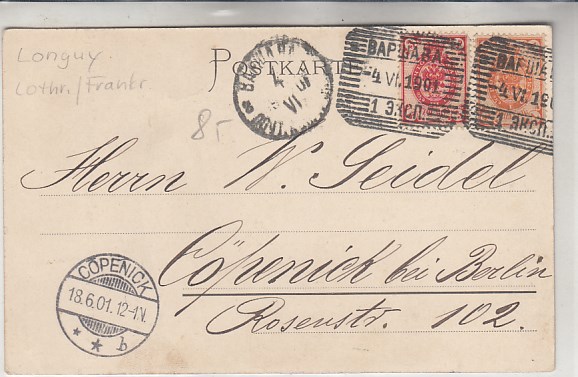 Longuy.
Lothr./Frankr.
POSTKARTE
8 Г
ВАРШАВА
4 VI
ВАРШАВА.
-4 VI.1901
1 ЭКСП.
-4 VI.190
1 ЭКСП.
Herrn W. Seidel
Cöpenick bei Berlin
Rosenstr. 102.
CÖPENICK
18.6.01.12-1N.
* * b